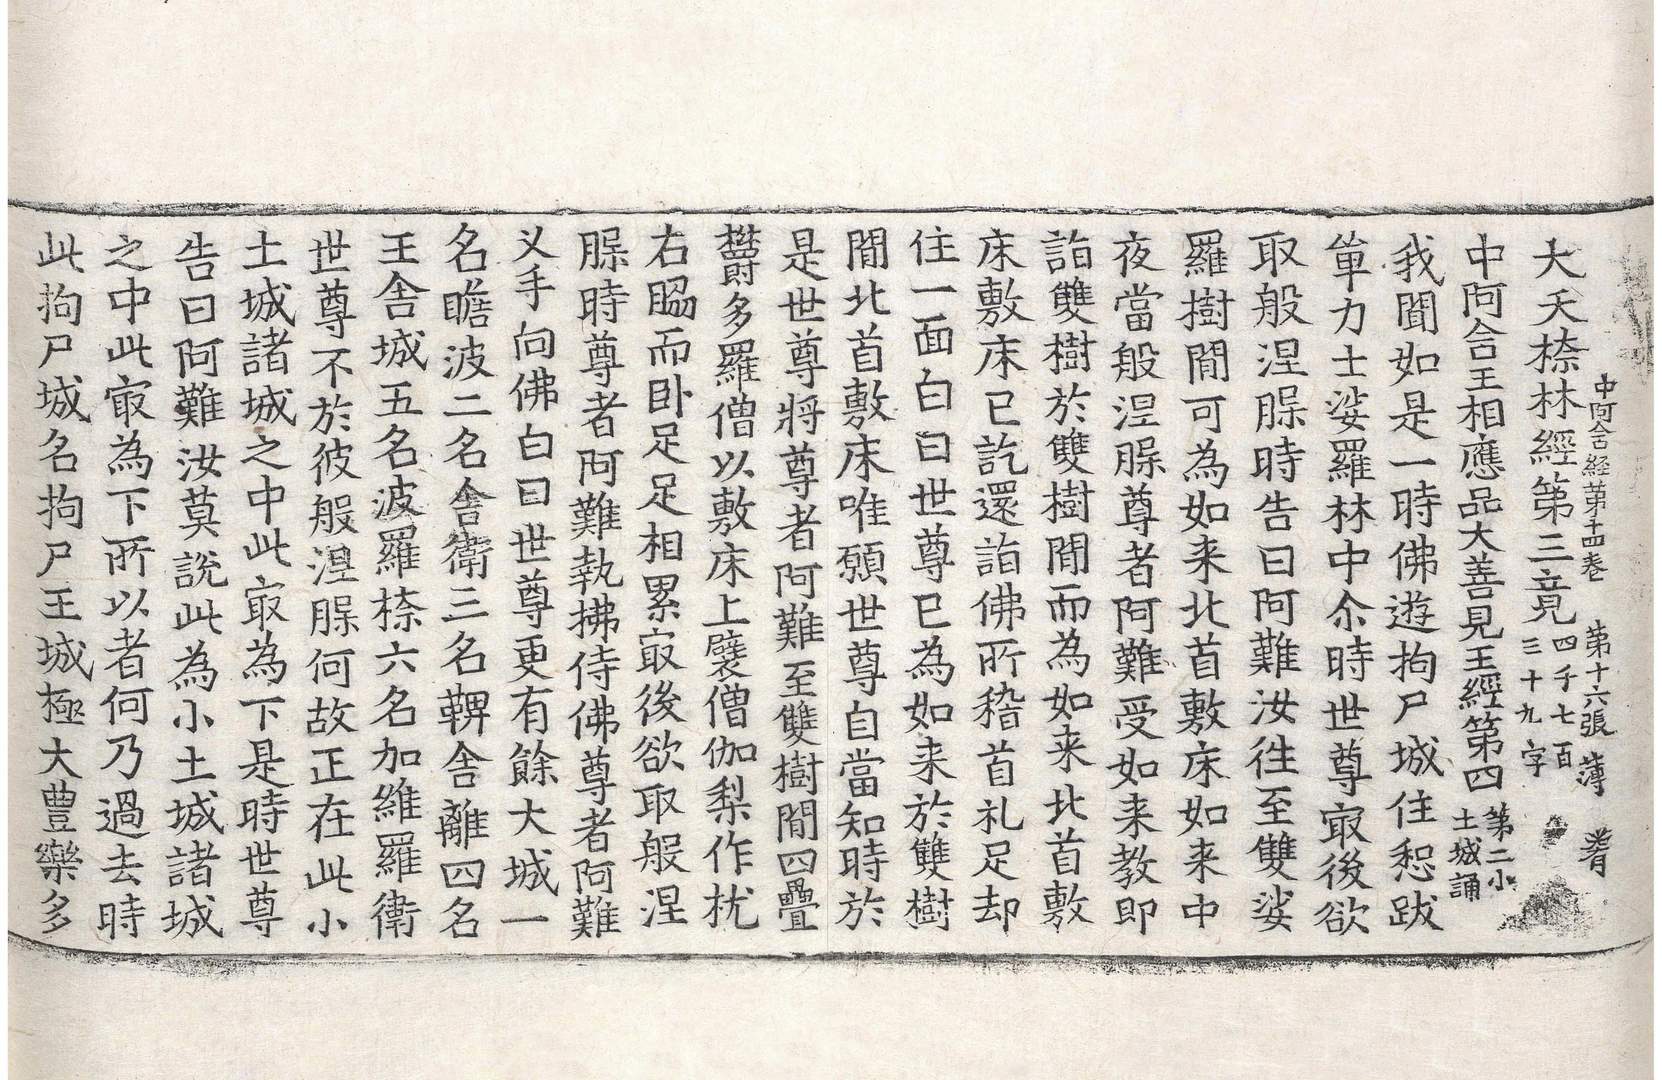 中阿含経第十四卷　第十六張　薄
大天㮈林經第三竟四千七百三十九字
中阿含王相應品大善見王經第四第二小土城誦
我聞如是一時佛遊拘尸城住恕跋
單力士娑羅林中尒時世尊㝡後欲
取般涅𦞙時告曰阿難汝往至雙娑
羅樹間可為如来北首敷床如来中
夜當般涅𦞙尊者阿難受如来教即
詣雙樹於雙樹間而為如来北首敷
床敷床已訖還詣佛所稽首礼足却
住一面白曰世尊已為如来於雙樹
間北首敷床唯願世尊自當知時於
是世尊將尊者阿難至雙樹間四疊
欝多羅僧以敷床上襞僧伽梨作枕
右脇而卧足足相累㝡後欲取般涅
𦞙時尊者阿難執拂侍佛尊者阿難
叉手向佛白曰世尊更有餘大城一
名瞻波二名舍衛三名鞞舍離四名
王舍城五名波羅㮈六名加維羅衛
世尊不於彼般涅𦞙何故正在此小
土城諸城之中此㝡為下是時世尊
告曰阿難汝莫說此為小土城諸城
之中此㝡為下所以者何乃過去時
此拘尸城名拘尸王城極大豊樂多